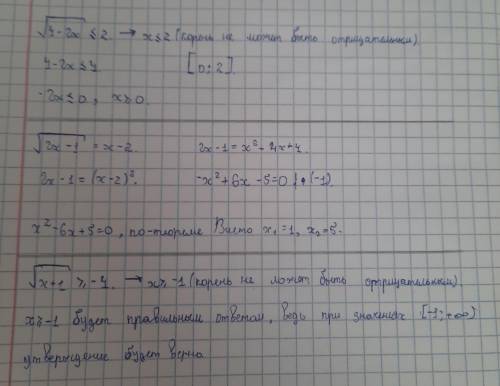 √4-2x ≤ 2 → x≤2 (корень не может быть отрицательным)
4-2x≤4 [0;2].
-2x≤0, x≥0.
√2x-1 = x-2. 2x-1=x²-4x+4.
2x-1=(x-2)². -x²+6x-5=0 |•(-1)
x²-6x+5=0, по теореме Виета x₁=1, x₂=5.
√x+1 ≥ -4. → x≥-1 (корень не может быть отрицательным)
x≥-1 будет правильным ответом, ведь при значениях [-1;+∞)
утверждение будет верно